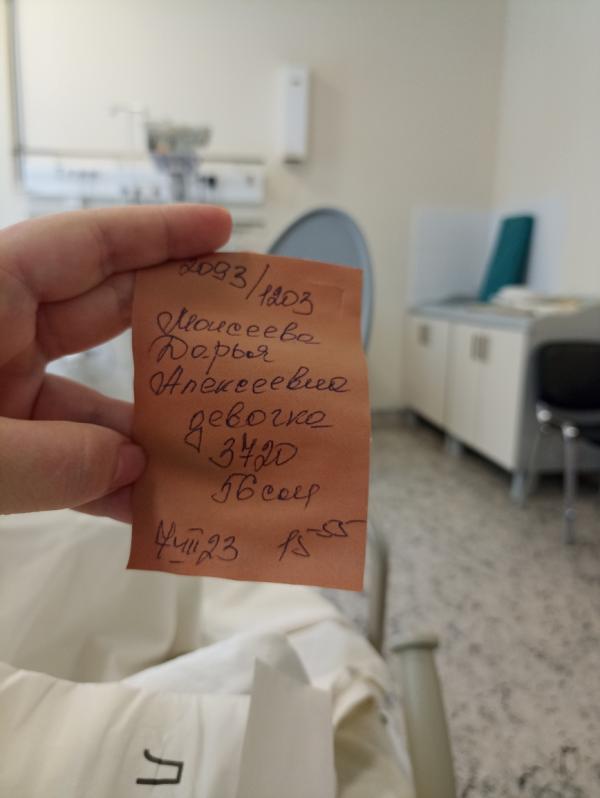 2093/1203
Моисеева
Дарья
Алексеевна
девочка
3720
56 см
7 VIII 23 15-55
Л